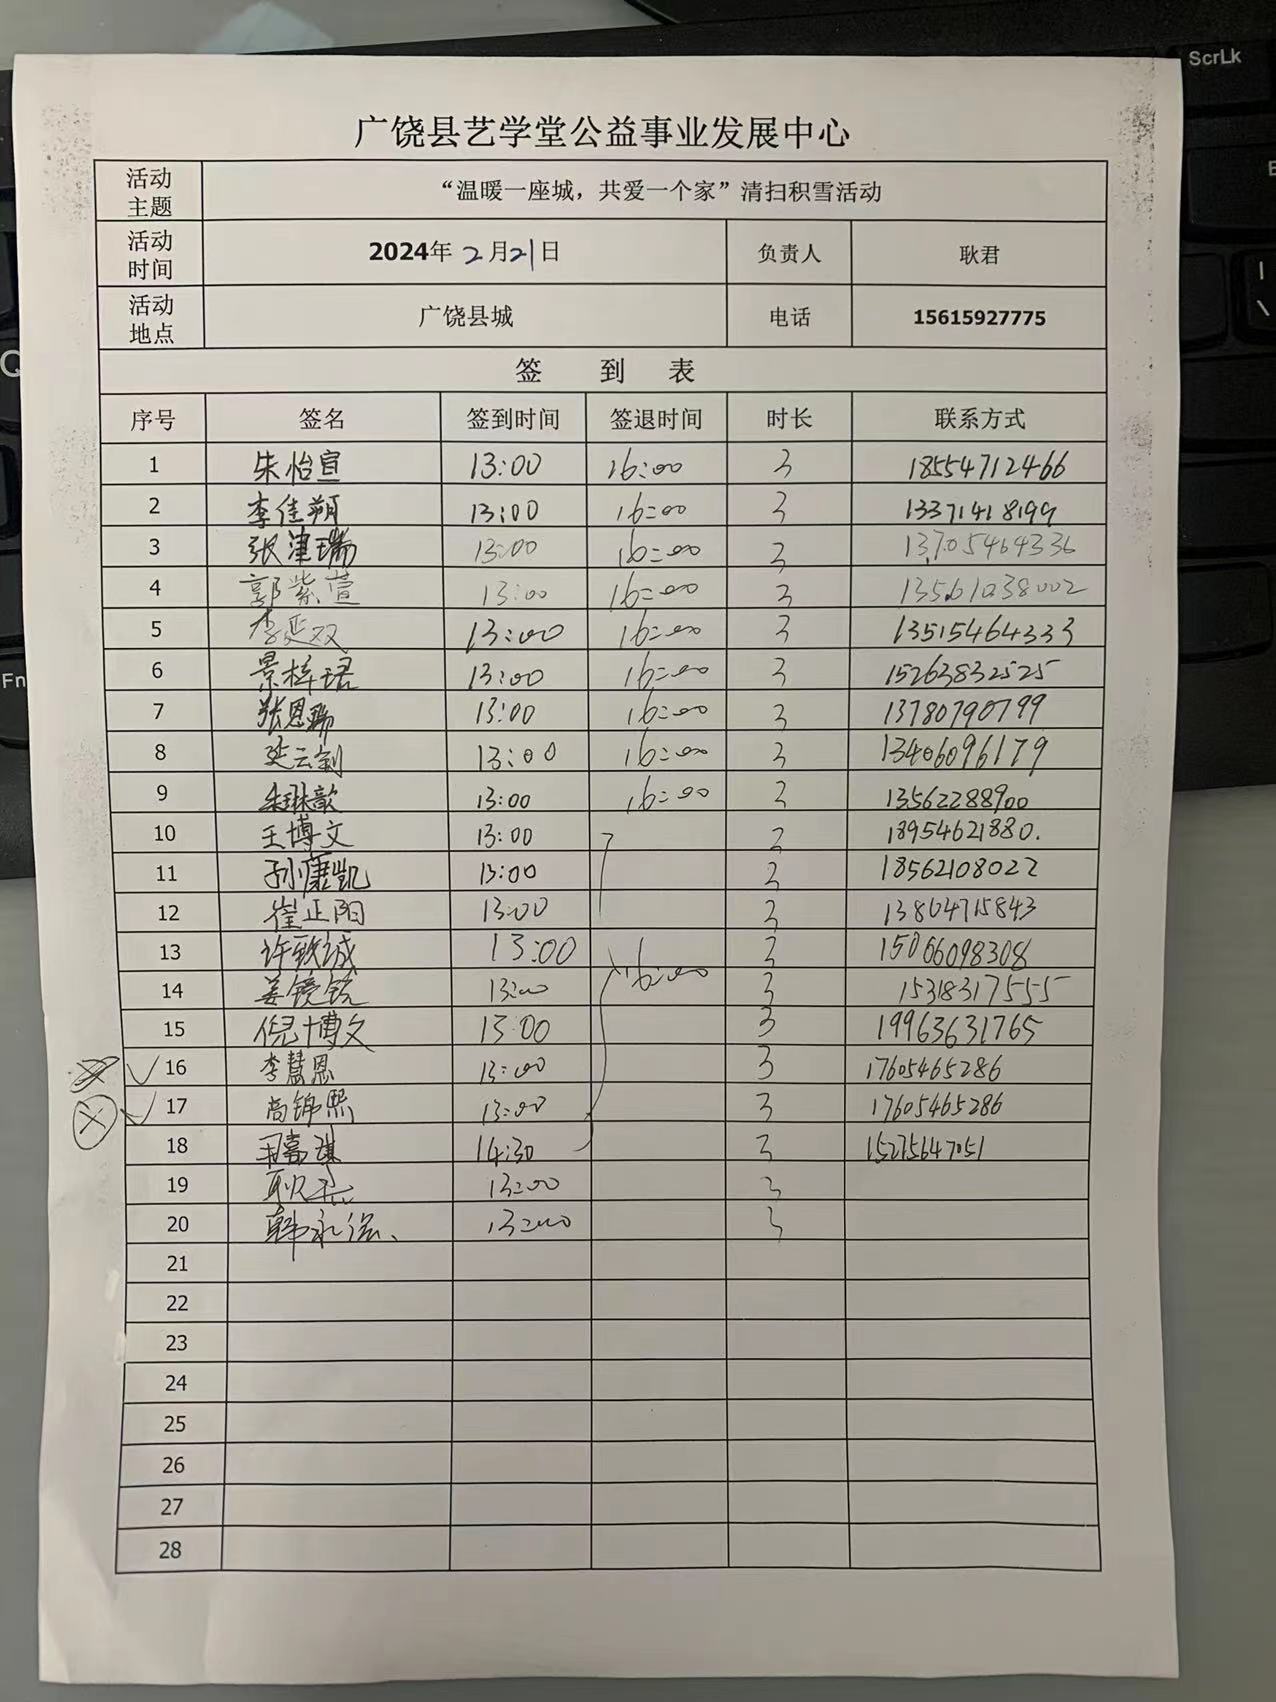 ScrLk
Q
Fn
广饶县艺学堂公益事业发展中心
活动主题 “温暖一座城，共爱一个家”清扫积雪活动
活动时间 2024年 2月21日 负责人 耿君
活动地点 广饶县城 电话 15615927775
签 到 表
序号 签名 签到时间 签退时间 时长 联系方式
1 朱怡宣 13:00 16:00 3 18554712466
2 李佳朔 13:00 16:00 3 13371418199
3 张津瑞 13:00 16:00 3 13705464336
4 郭紫萱 13:00 16:00 3 13561038002
5 李延双 13:00 16:00 3 13515464333
6 景梓珺 13:00 16:00 3 15263832525
7 张恩瑞 13:00 16:00 3 13780790799
8 延云钊 13:00 16:00 3 13406096179
9 朱琳歆 13:00 16:00 3 13562288900
10 王博文 13:00 3 18954621880.
11 孙康凯 13:00 3 18562108022
12 崔正阳 13:00 3 13864715843
13 许致诚 13:00 16:00 3 15066098308
14 姜镜铳 13:00 3 15318317555
15 倪博文 13:00 3 19963631765
16 李慧恩 13:00 3 17605465286
17 高锦熙 13:00 3 17605465286
18 王嘉琪 14:30 3 15275647051
19 13:00 3
20 韩永 13:00 3
21
22
23
24
25
26
27
28